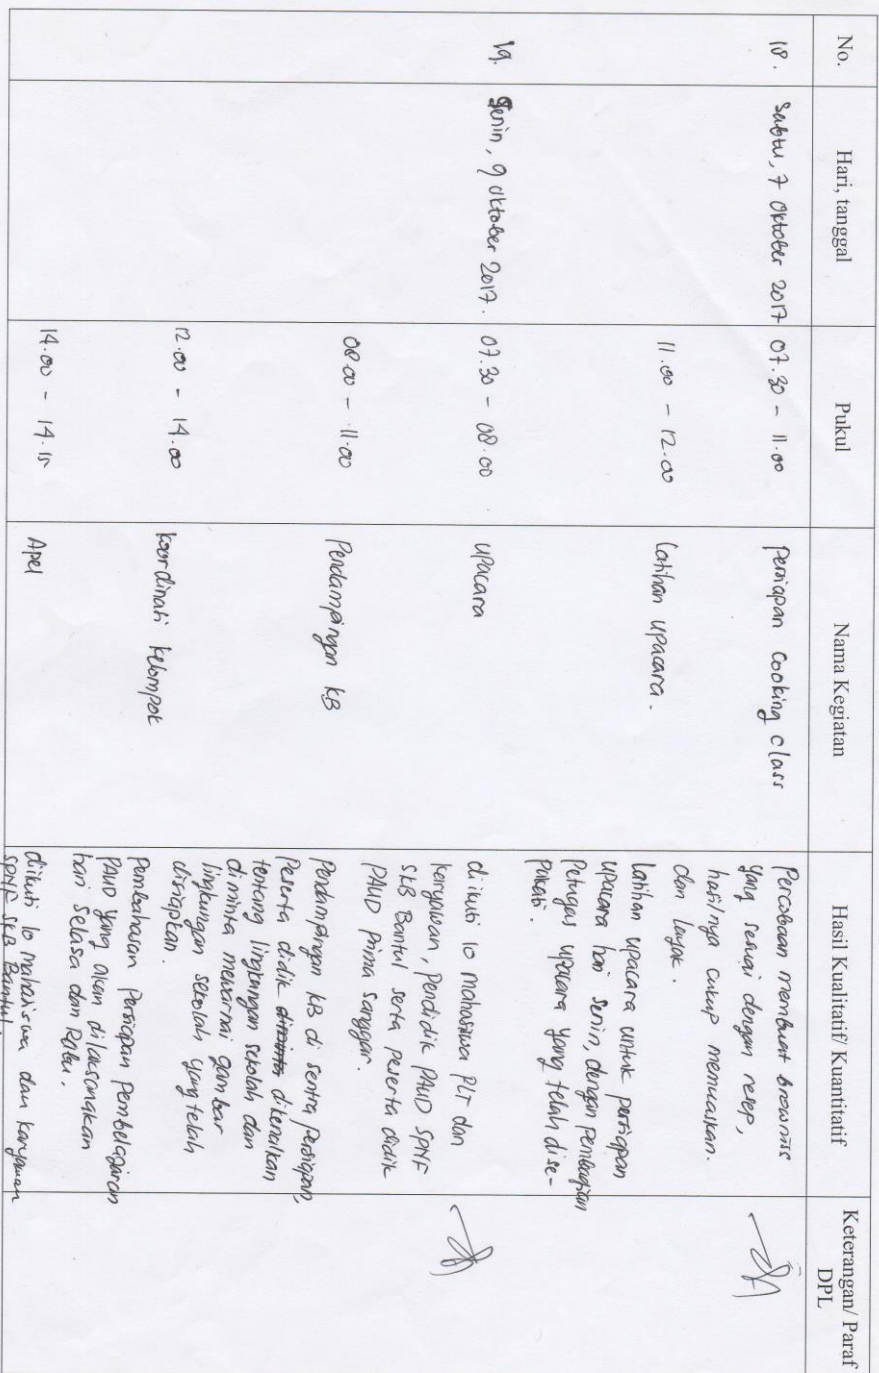 No.
Hari, tanggal
Pukul
Nama Kegiatan
Hasil Kualitatif/ Kuantitatif
Keterangan/ Paraf DPL
18.
Sabtu, 7 Oktober 2017
07.30 - 11.00
Persiapan cooking class
Percobaan membuat brownis
yang sesuai dengan resep,
hasilnya cukup memuaskan.
dan layak.
11.00 - 12.00
Latihan upacara.
Latihan upacara untuk persiapan
upacara hari senin, dengan pembagian
petugas upacara yang telah dise-
pakati.
19.
Senin, 9 Oktober 2017.
07.30 - 08.00
upacara
diikuti 10 mahasiswa PLT dan
karyawan, pendidik PAUD SPNF
SKB Bantul serta peserta didik
PAUD Prima Sanggar.
08.00 - 11.00
Pendampingan KB
Pendampingan KB di sentra persiapan,
peserta didik diminta dikenalkan
tentang lingkungan sekolah dan
diminta mewarnai gambar
lingkungan sekolah yang telah
disiapkan.
12.00 - 14.00
koordinati kelompok
Pembahasan persiapan pembelajaran
PAUD yang akan dilaksanakan
hari Selasa dan Rabu.
14.00 - 14.15
Apel
diikuti 10 mahasiswa dan karyawan
SPNF SKB Bantul.